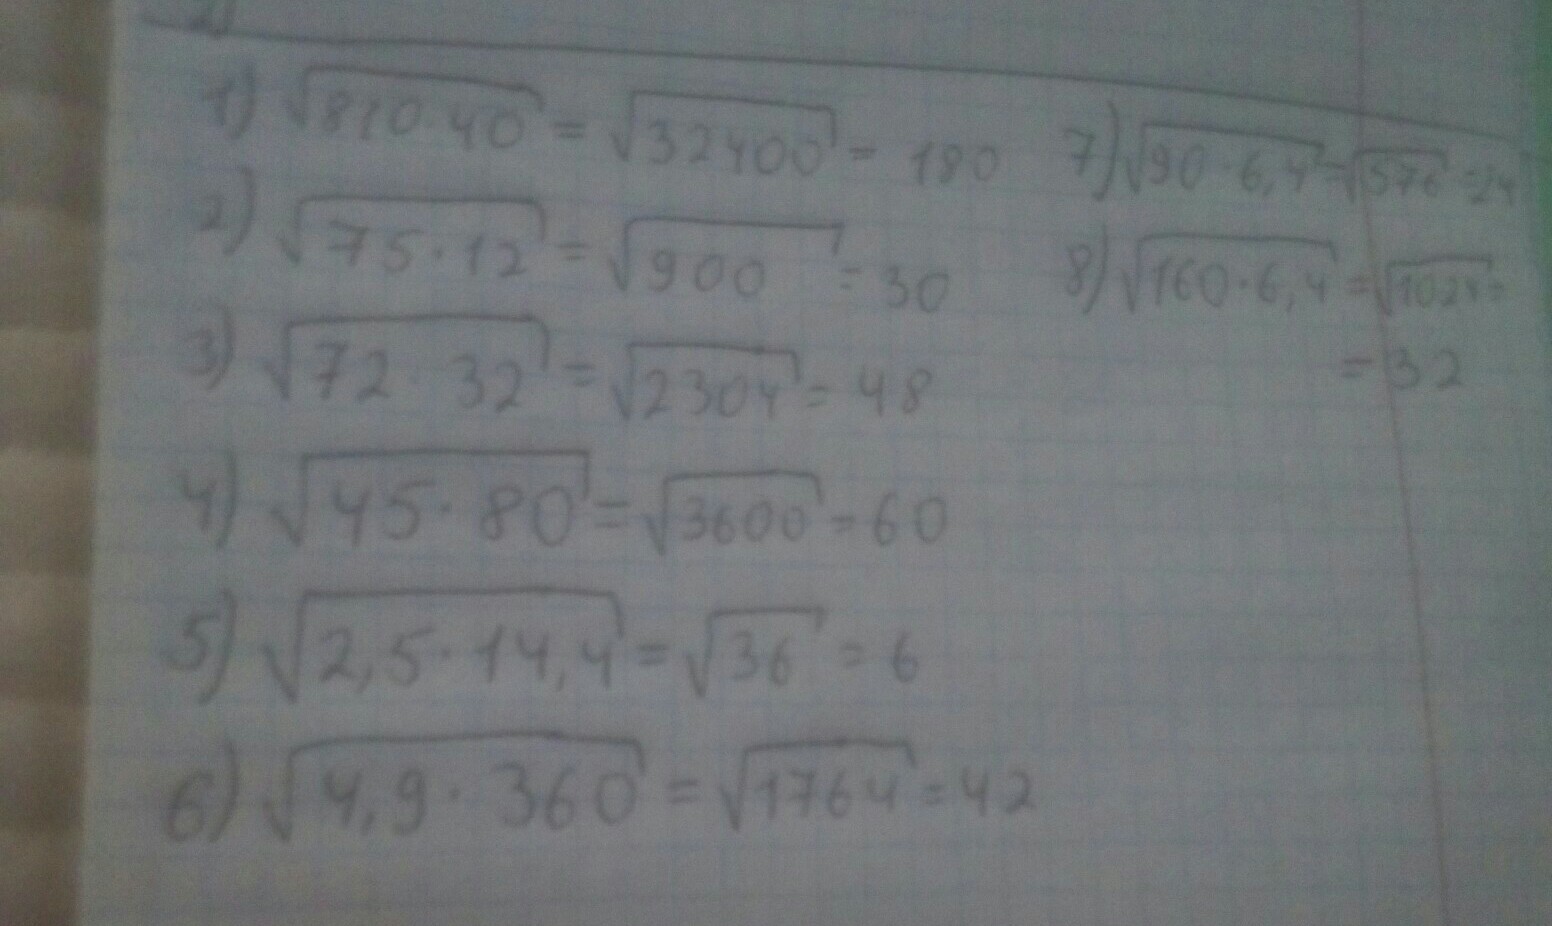 1) √810·40 = √32400 = 180
2) √75·12 = √900 = 30
3) √72·32 = √2304 = 48
4) √45·80 = √3600 = 60
5) √2,5·14,4 = √36 = 6
6) √4,9·360 = √1764 = 42
7) √90·6,4 = √576 = 24
8) √160·6,4 = √1024 =
= 32